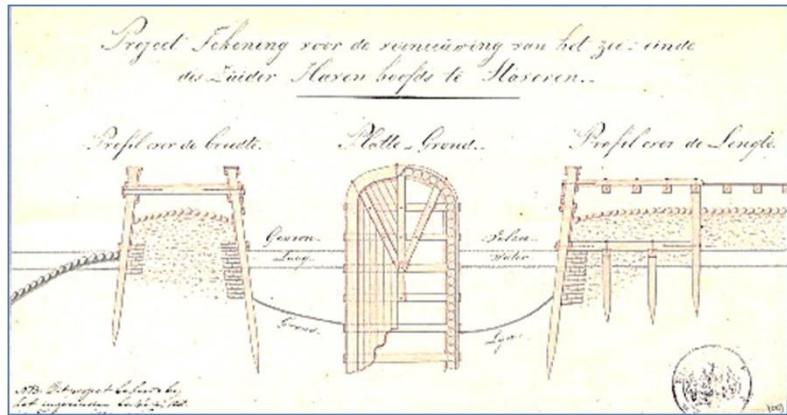 Project Tekening voor de vernieuwing van het zee-einde
des Zuider Haven hoofds te Staveren.
Profil over de breedte. Platte-Grond. Profil over de Lengte.
Gewoon
Laag Water
Grond Lyn
NB:
het